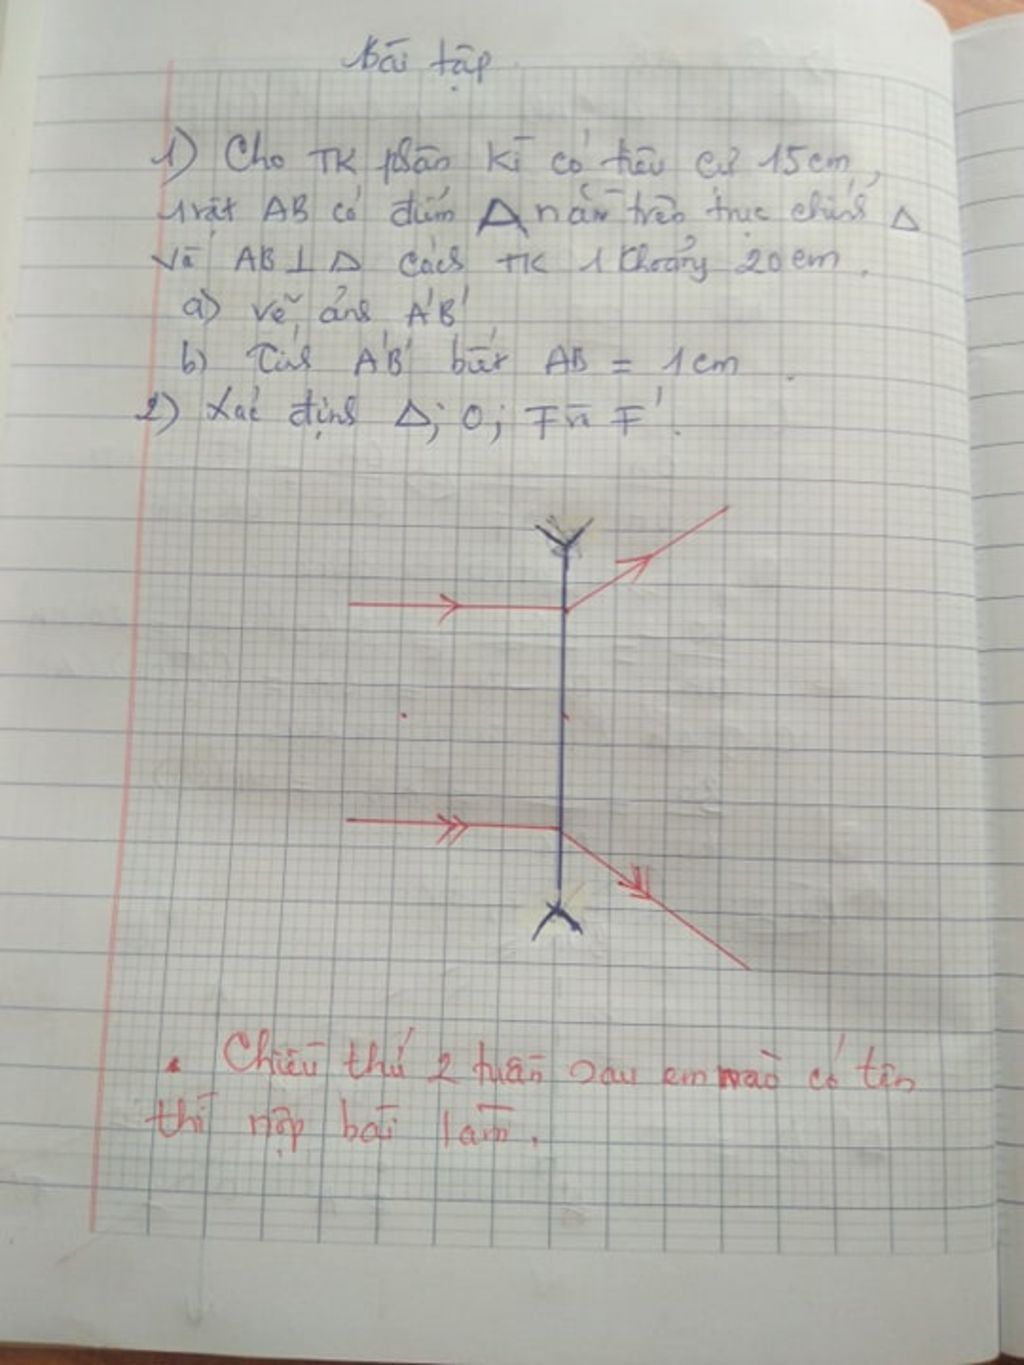 Bài tập
1) Cho TK phân kì có tiêu cự 15cm,
vật AB có điểm A nằm trên trục chính Δ
và AB ⊥ Δ cách TK 1 khoảng 20cm.
a) vẽ ảnh A'B'
b) Tính A'B' biết AB = 1cm.
2) Xác định Δ; O; F và F'.
• Chiều thứ 2 tuần sau em nào có tên
thì nộp bài làm.